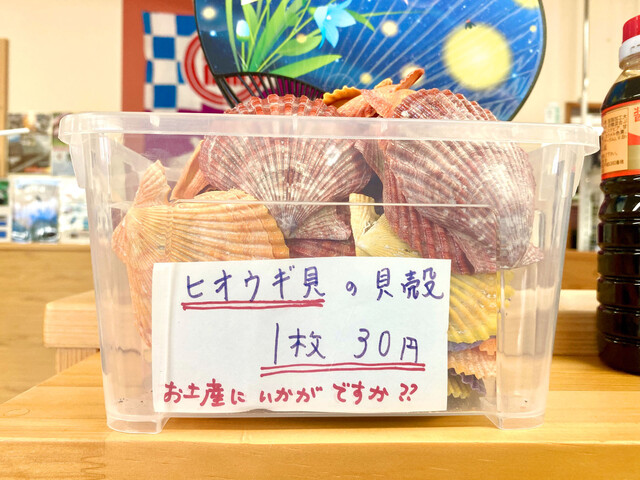 ヒオウギ貝の貝殻
1枚 30円
お土産にいかがですか??